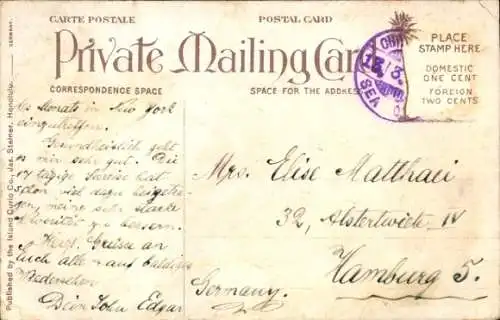 CARTE POSTALE
POSTAL CARD
Private Mailing Card
CORRESPONDENCE SPACE
SPACE FOR THE ADDRESS
PLACE
STAMP HERE
DOMESTIC
ONE CENT
FOREIGN
TWO CENTS
13. 5.
SEA
Monats in New York
einzutreffen.
Gesundheitlich geht
es mir sehr gut. Die
17 tägige Seereise hat
schon viel dazu beigetra-
gen, meine sehr starke
zu bessern.
Herzl. Grüsse an
Euch alle auf baldiges
Wiedersehen
Dein Sohn Edgar
Mrs. Elise Matthaei
32, Alsterwiete IV
Hamburg 5.
Germany.
Published by the Island Curio Co., Jas. Steiner, Honolulu.
GERMANY.